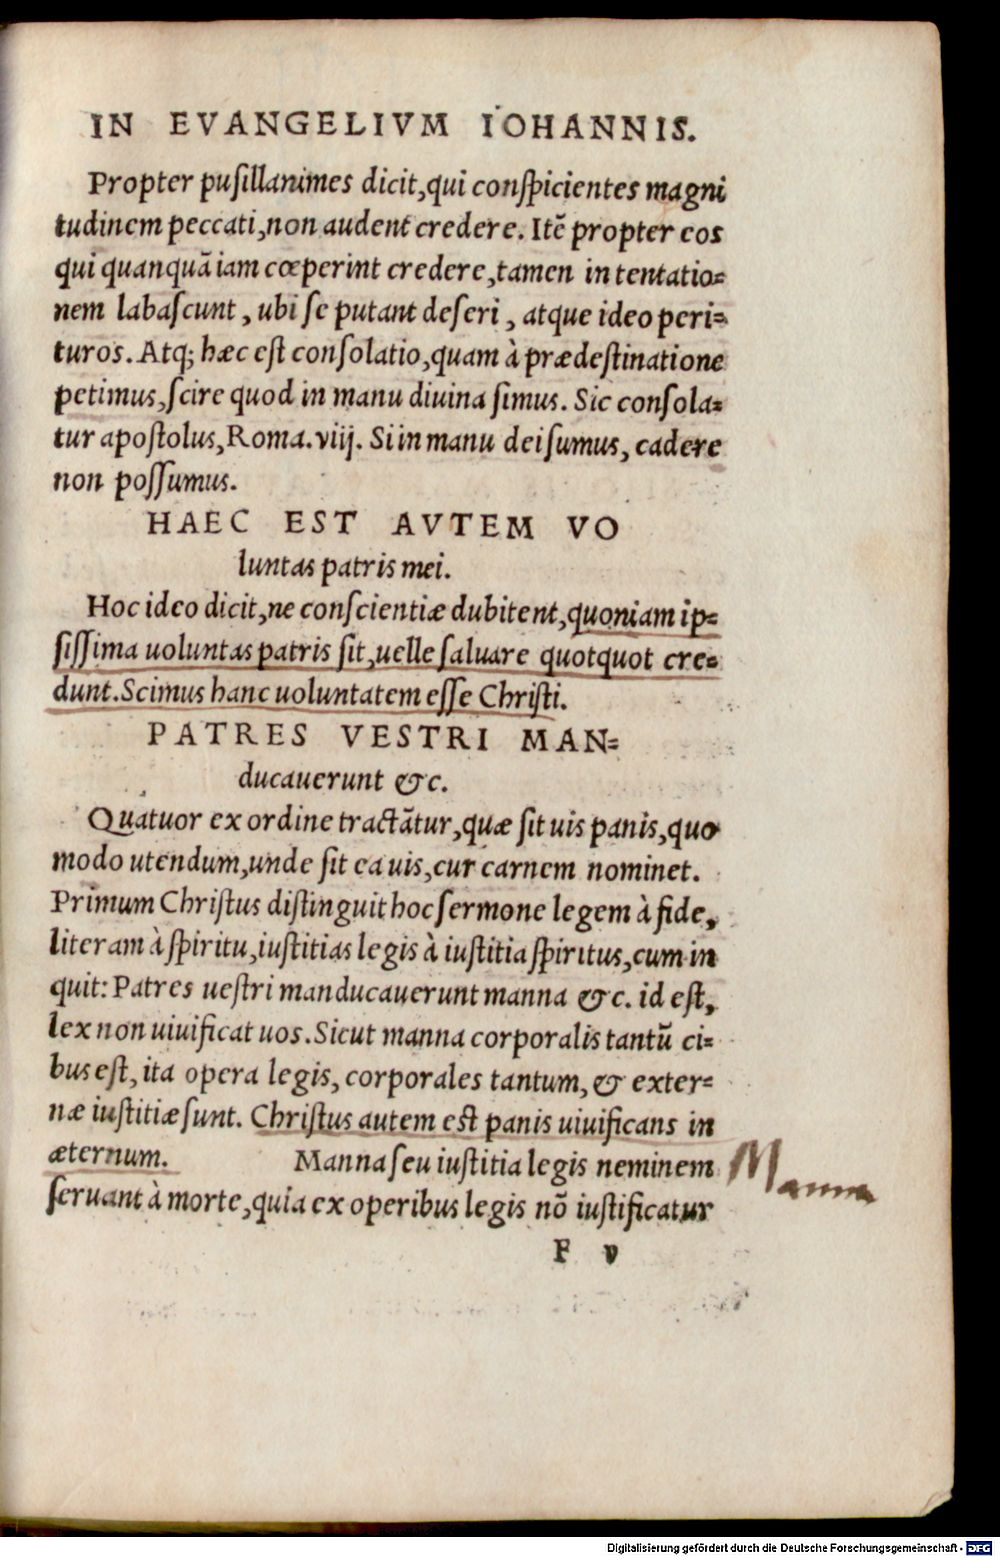 IN EVANGELIVM IOHANNIS.
Propter pusillanimes dicit, qui conspicientes magni
tudinem peccati, non audent credere. Itẽ propter eos
qui quanquã iam cœperint credere, tamen in tentatio=
nem labascunt, ubi se putant deseri, atque ideo peri=
turos. Atq; hæc est consolatio, quam à prædestinatione
petimus, scire quod in manu diuina simus. Sic consola=
tur apostolus, Roma. viij. Si in manu dei sumus, cadere
non possumus.
HAEC EST AVTEM VO
luntas patris mei.
Hoc ideo dicit, ne conscientiæ dubitent, quoniam ip=
sissima uoluntas patris sit, uelle saluare quotquot cre=
dunt. Scimus hanc uoluntatem esse Christi.
PATRES VESTRI MAN=
ducauerunt &c.
Quatuor ex ordine tractãtur, quæ sit uis panis, quo
modo utendum, unde sit ea uis, cur carnem nominet.
Primum Christus distinguit hoc sermone legem à fide,
literam à spiritu, iustitias legis à iustitia spiritus, cum in
quit: Patres uestri manducauerunt manna &c. id est,
lex non uiuificat uos. Sicut manna corporalis tantũ ci=
bus est, ita opera legis, corporales tantum, & exter=
næ iustitiæ sunt. Christus autem est panis uiuificans in
æternum. Manna seu iustitia legis neminem
Manna
seruant à morte, quia ex operibus legis nõ iustificatur
F v
Digitalisierung gefördert durch die Deutsche Forschungsgemeinschaft - DFG